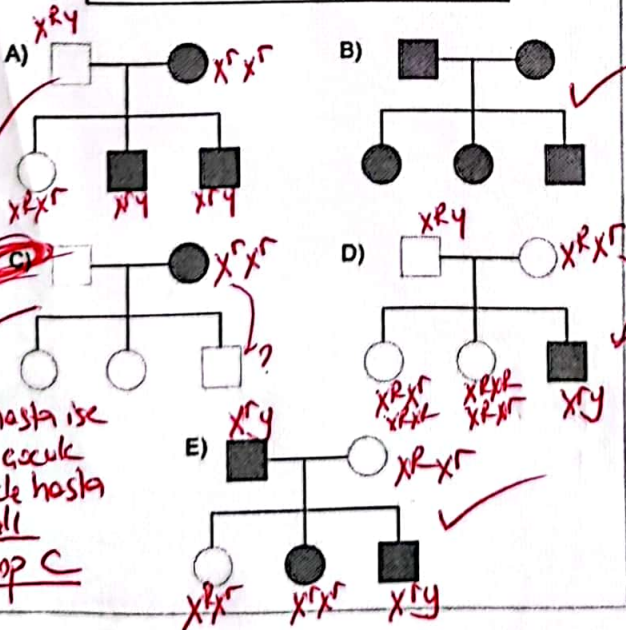 A)
X^R y
X^r X^r
X^R X^r
X^r y
X^r y
B)
C)
X^r X^r
?
D)
X^R y
X^R X^r
X^R X^r
X^R X^R
X^R X^R
X^R X^r
X^r y
hasta ise
çocuk
hasta
C
E)
X^r y
X^R X^r
X^R X^r
X^r X^r
X^r y